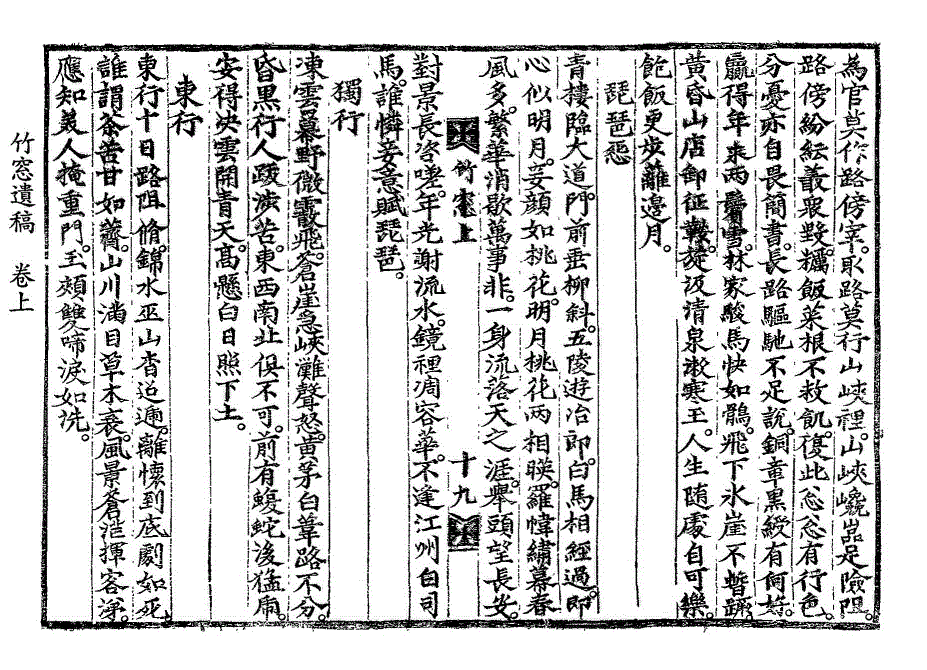 為官莫作路傍宰。取路莫行山峽裡。山峽巉嵓足險阻。
路傍紛紜叢衆毁。糲飯菜根不救飢。復此怱怱有行色。
分憂亦自畏簡書。長路驅馳不足說。銅章黑綬有何好。
贏得年來兩鬢雪。林家駿馬快如鶻。飛下氷崖不暫蹰。
黃昏山店卸征鞍。旋汲清泉漱寒玉。人生随處自可樂。
飽飯更步蘺邊月。
琵琶怨
青樓臨大道。門前垂柳斜。五陵遊冶郎。白馬相經過。郎
心似明月。妾顔如桃花。明月桃花兩相暎。羅幃繡幕春
風多。繁華消歇萬事非。一身流落天之涯。擧頭望長安
竹窓上
十九
對景長咨嗟。年光謝流水。鏡裡凋容華。不逢江州白司
馬。誰憐妾意賦琵琶。
獨行
凍雲羃野微霰飛。蒼崖急峽灘聲怒。黃茅白葦路不分。
昏黑行人跋涉苦。東西南北俱不可。前有鰻蛇後猛虎。
安得决雲開青天。高懸白日照下土。
東行
東行十日路阻脩。錦水巫山杳迢遞。離懷到底劇如死。
誰謂荼苦甘如薺。山川滿目草木衰。風景蒼茫揮客涕。
應知美人掩重門。玉頰雙啼淚如洗。
竹窓遺稿 卷上